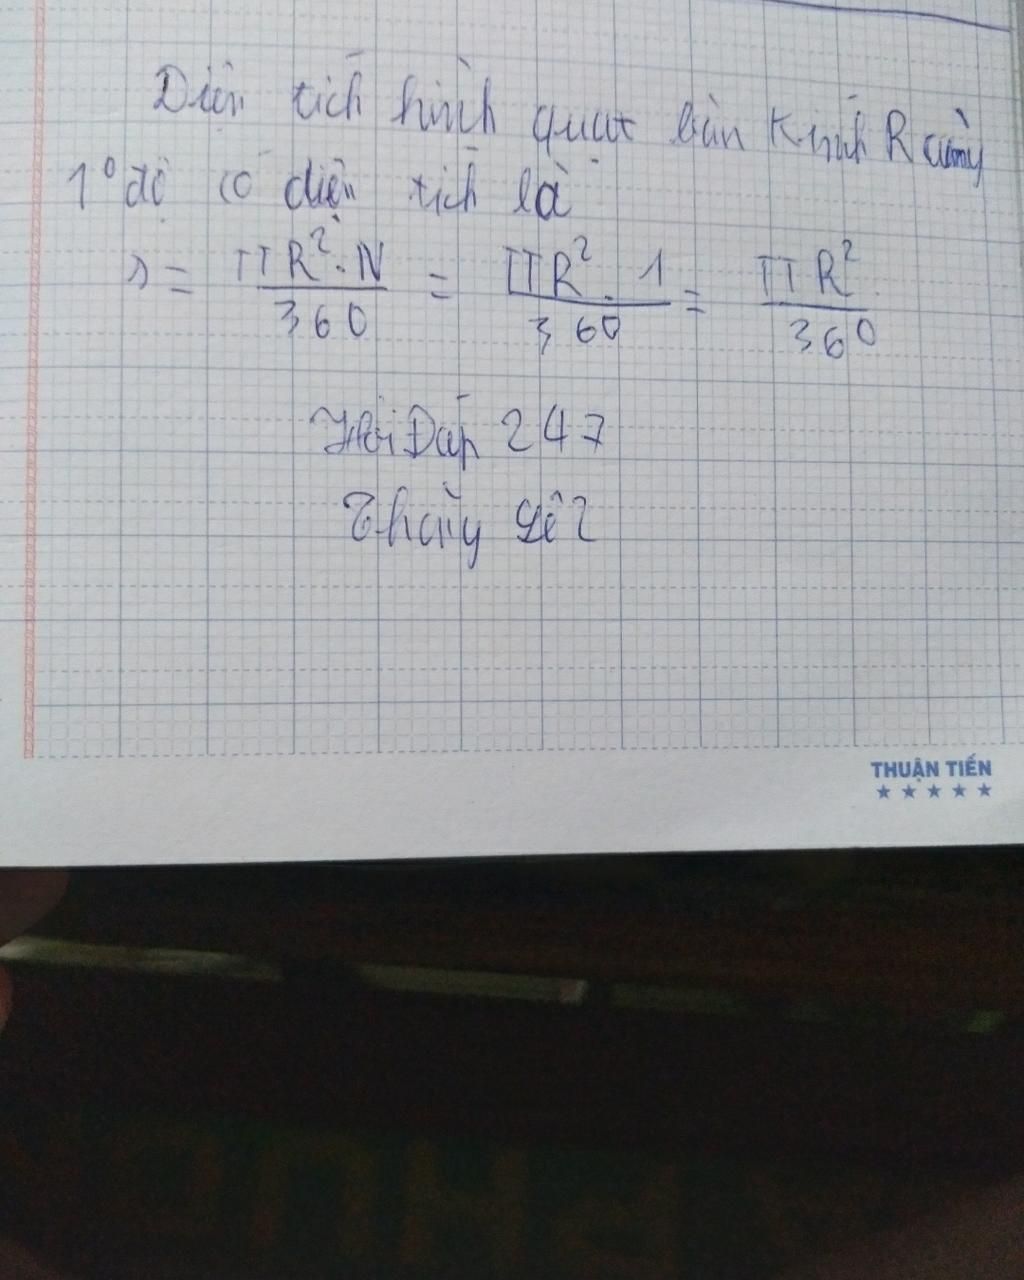 Diện tích hình quạt bán kính R cung
1° độ có diện tích là
S = πR².N/360 = πR².1/360 = πR²/360
Hỏi Đáp 247
Thầy
THUẬN TIẾN